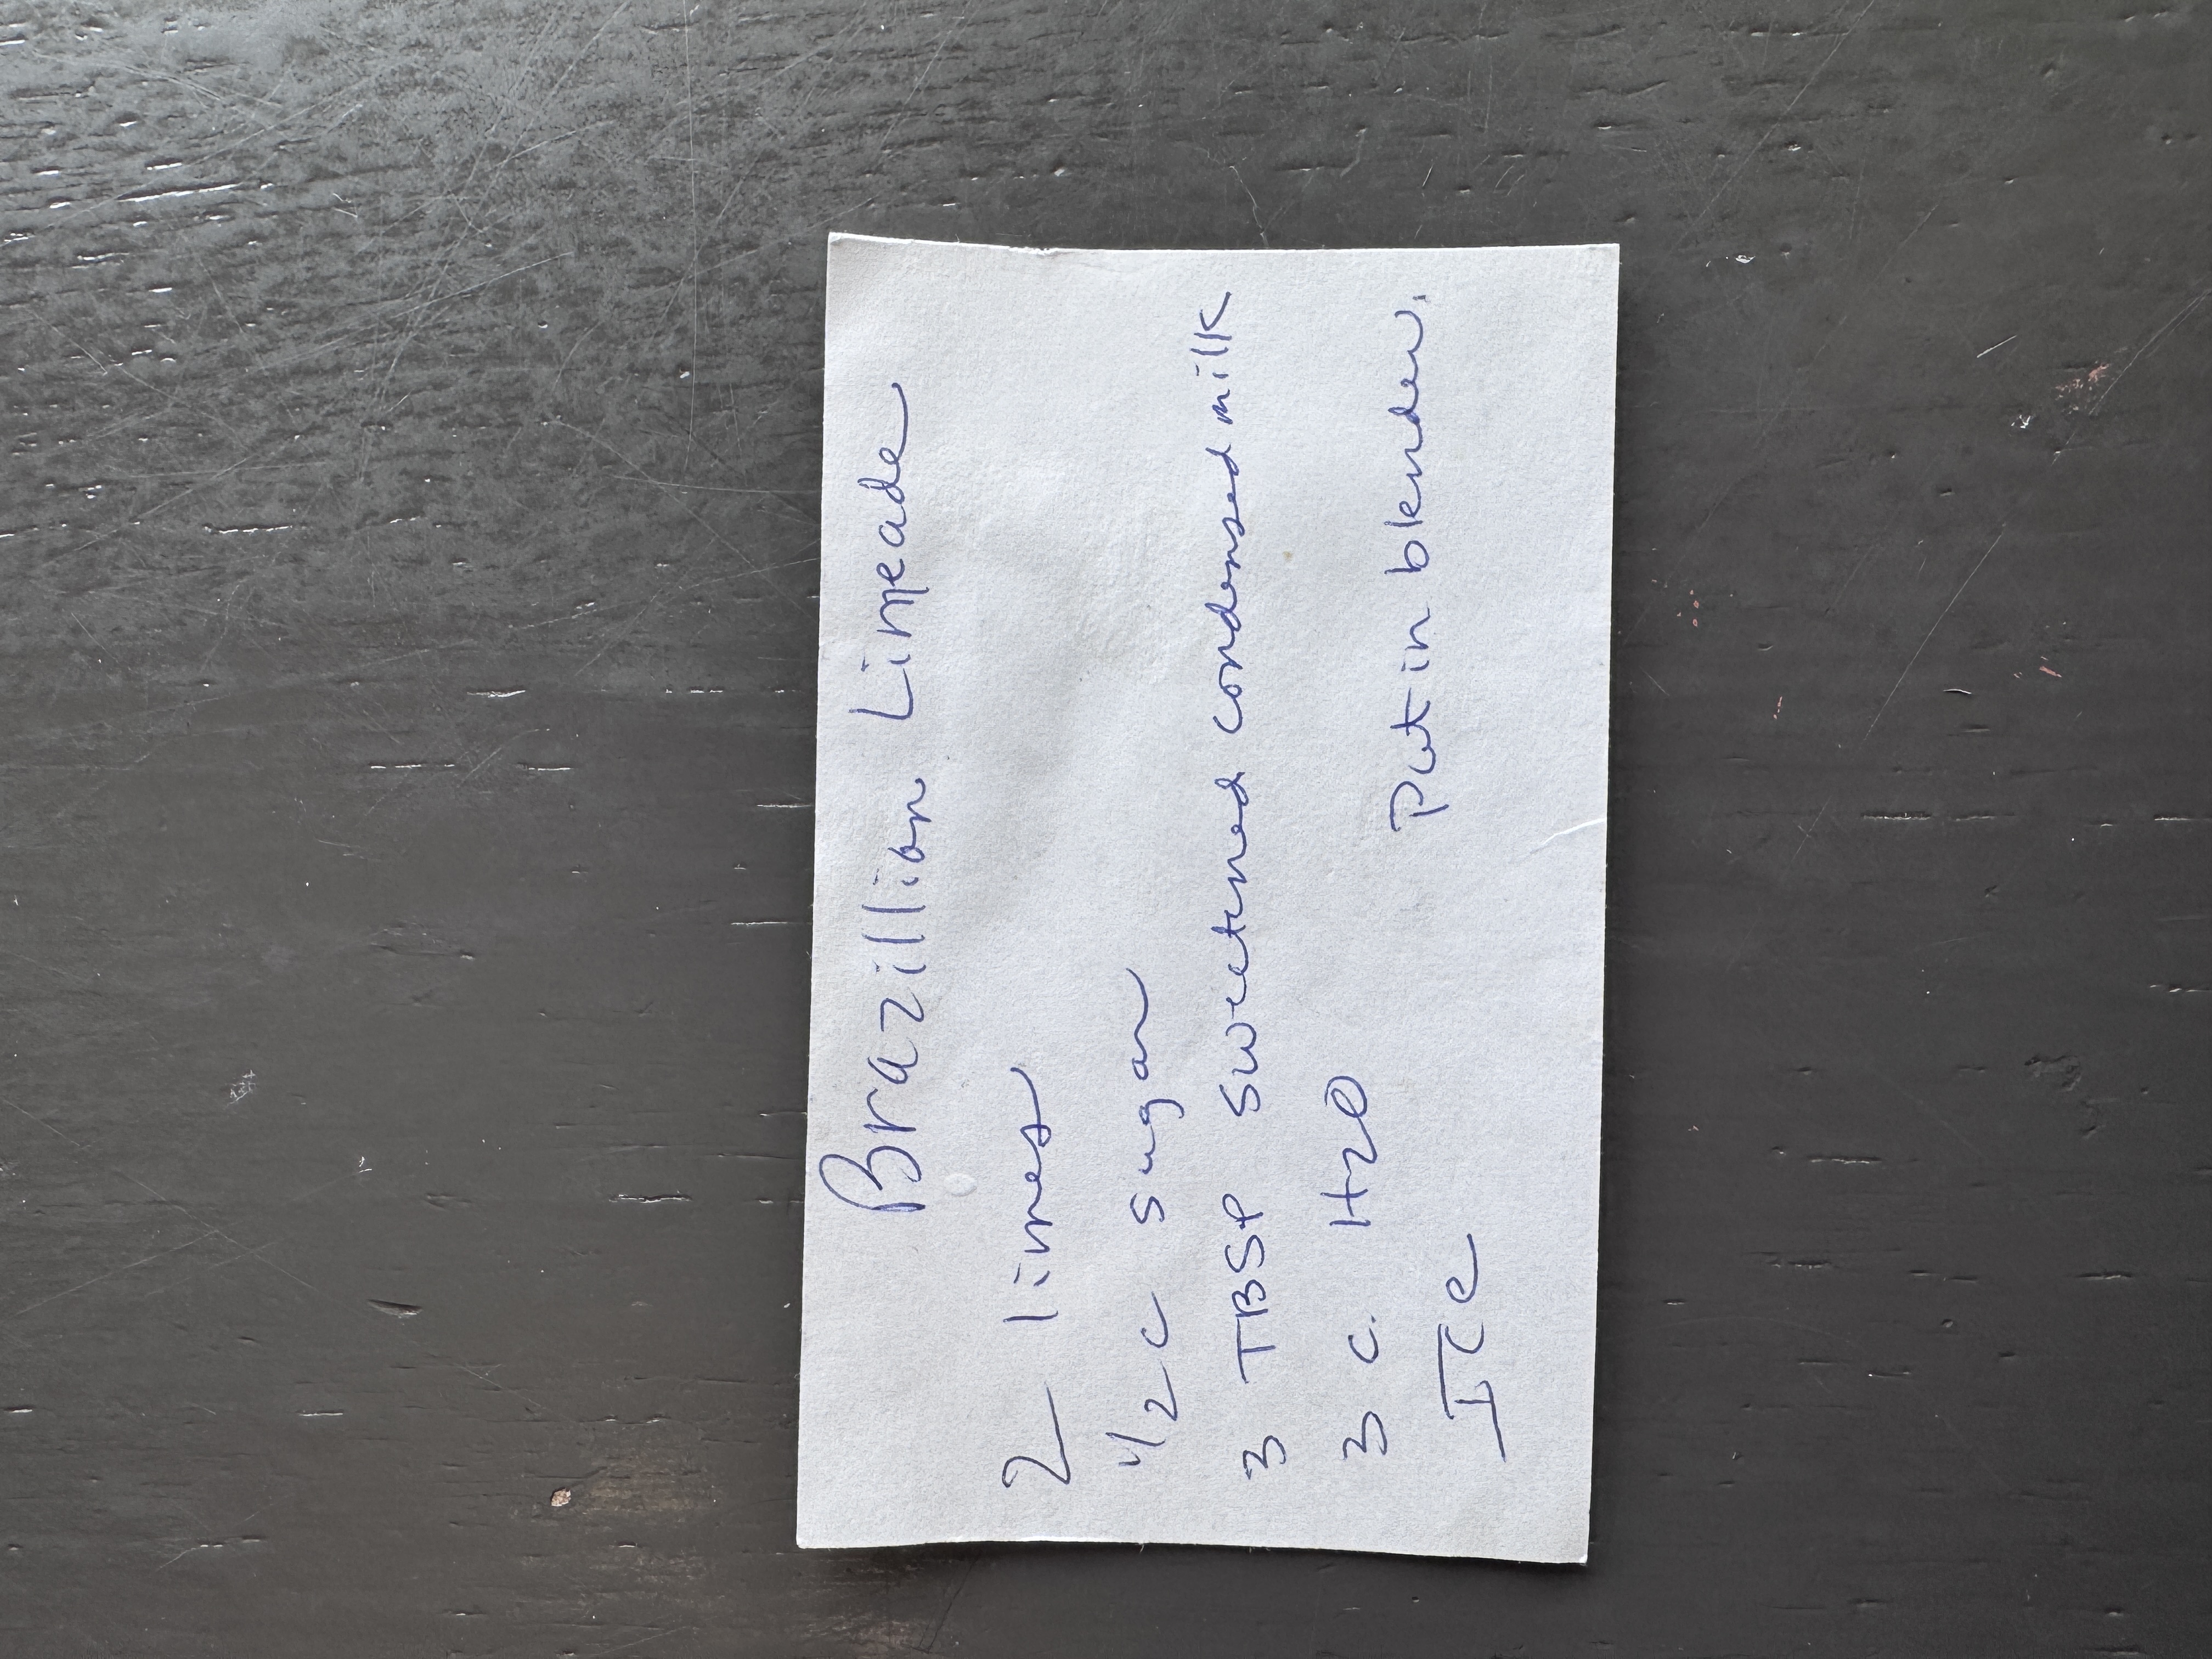 Brazillion Limeade
2 limes
1/2 c sugar
3 TBSP sweetened condensed milk
3 c. H20
Put in blender.
Ice